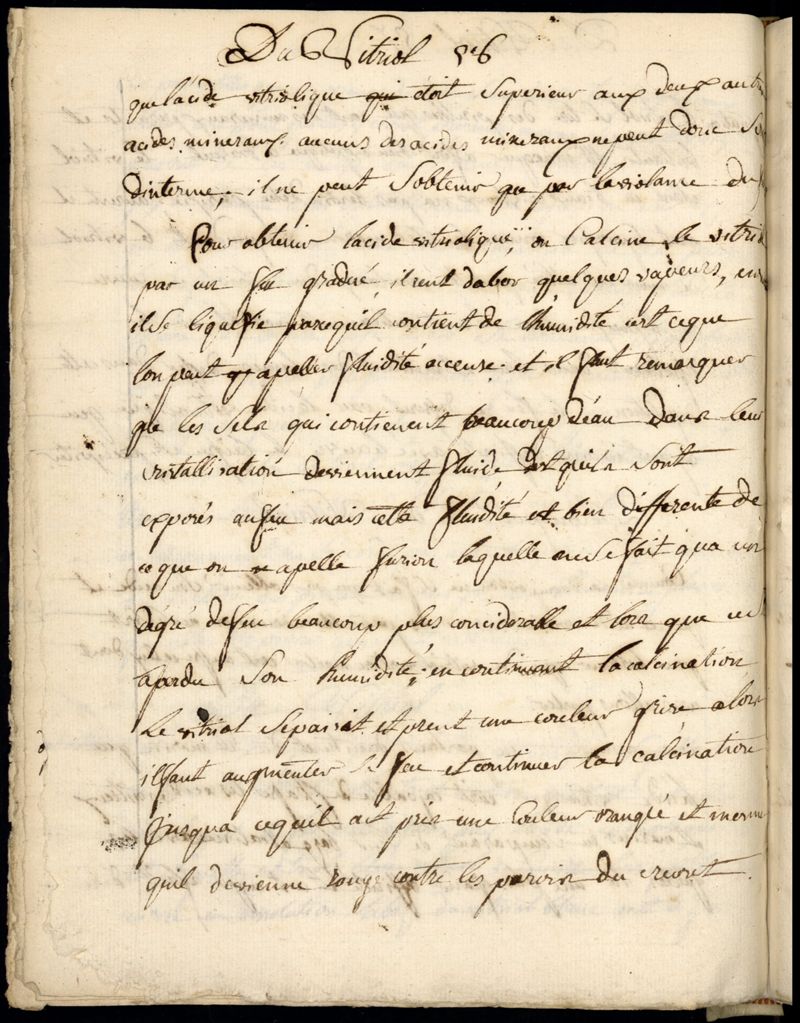 Du Vitriol
que lacide vitriolique qui étoit Superieur aux deux autr
acides mineraux. aucuns des acides mineraux ne peut donc Se
dinterme, il ne peut Sobtenir que par la violance du
Pour obtenir lacide vitriolique, on Calcine le vitrio
par un feu gradué, il rent dabor quelques vapeurs,
il Se liquefie parcequil contient de lhumidité cest ceque
lon peut apeller fluidité acceuse. et il faut remarquer
que les Sels qui contienent beaucoup déau dans leur
cristallisation deviennent fluide quils Sont
exposés aufeu mais cette fluidité et bien differente de
ce que on apelle fusion laquelle ne Se fait qua un
dégré defeu beaucoup plus considerable et lors que
aperdu Son humidité, en continuant la calcination
Le vitriol Sépaisit et prent une couleur grise alors
ilfaut augmenter le feu et continuer la calcination
Jusqua cequil aît pris une Couleur orangé et mesme
quil devienne rouge contre les parois du creuset.